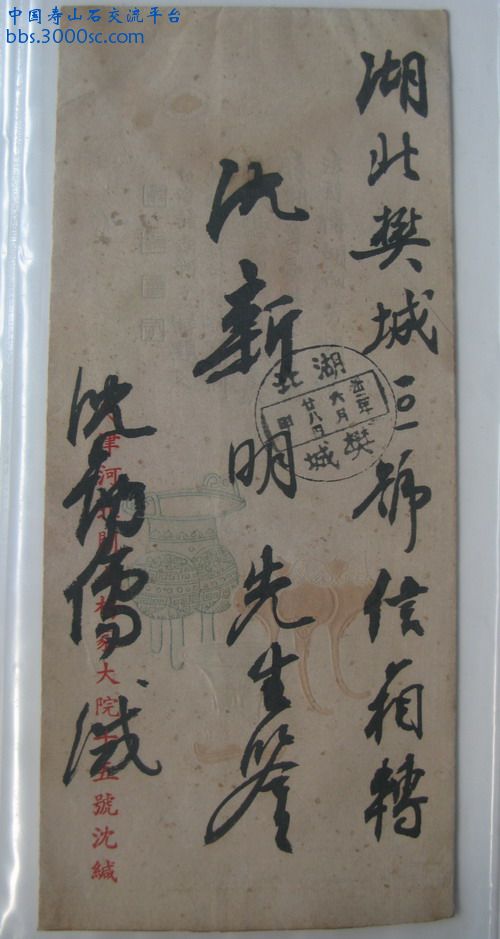 中国寿山石交流平台
bbs.3000sc.com
湖北樊城三〇一號信箱轉
沈新明先生鑒
沈幼儒緘
津河
大院十五號沈緘
湖北
六月
廿八日
樊城